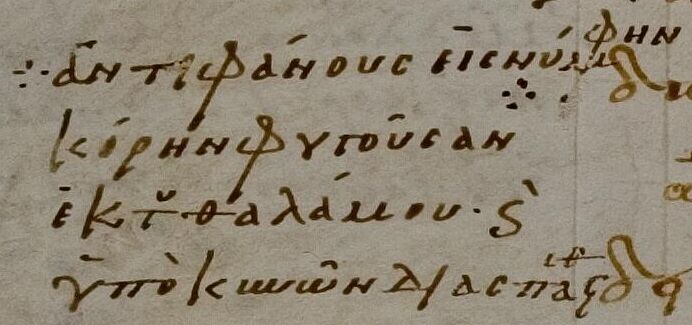 ἀντιφάνους εἰς νύμφην
κόρην φυγοῦσαν
ἐκ τοῦ θαλάμου. ϛ̀
ὑπὸ κυνῶν διασπασ